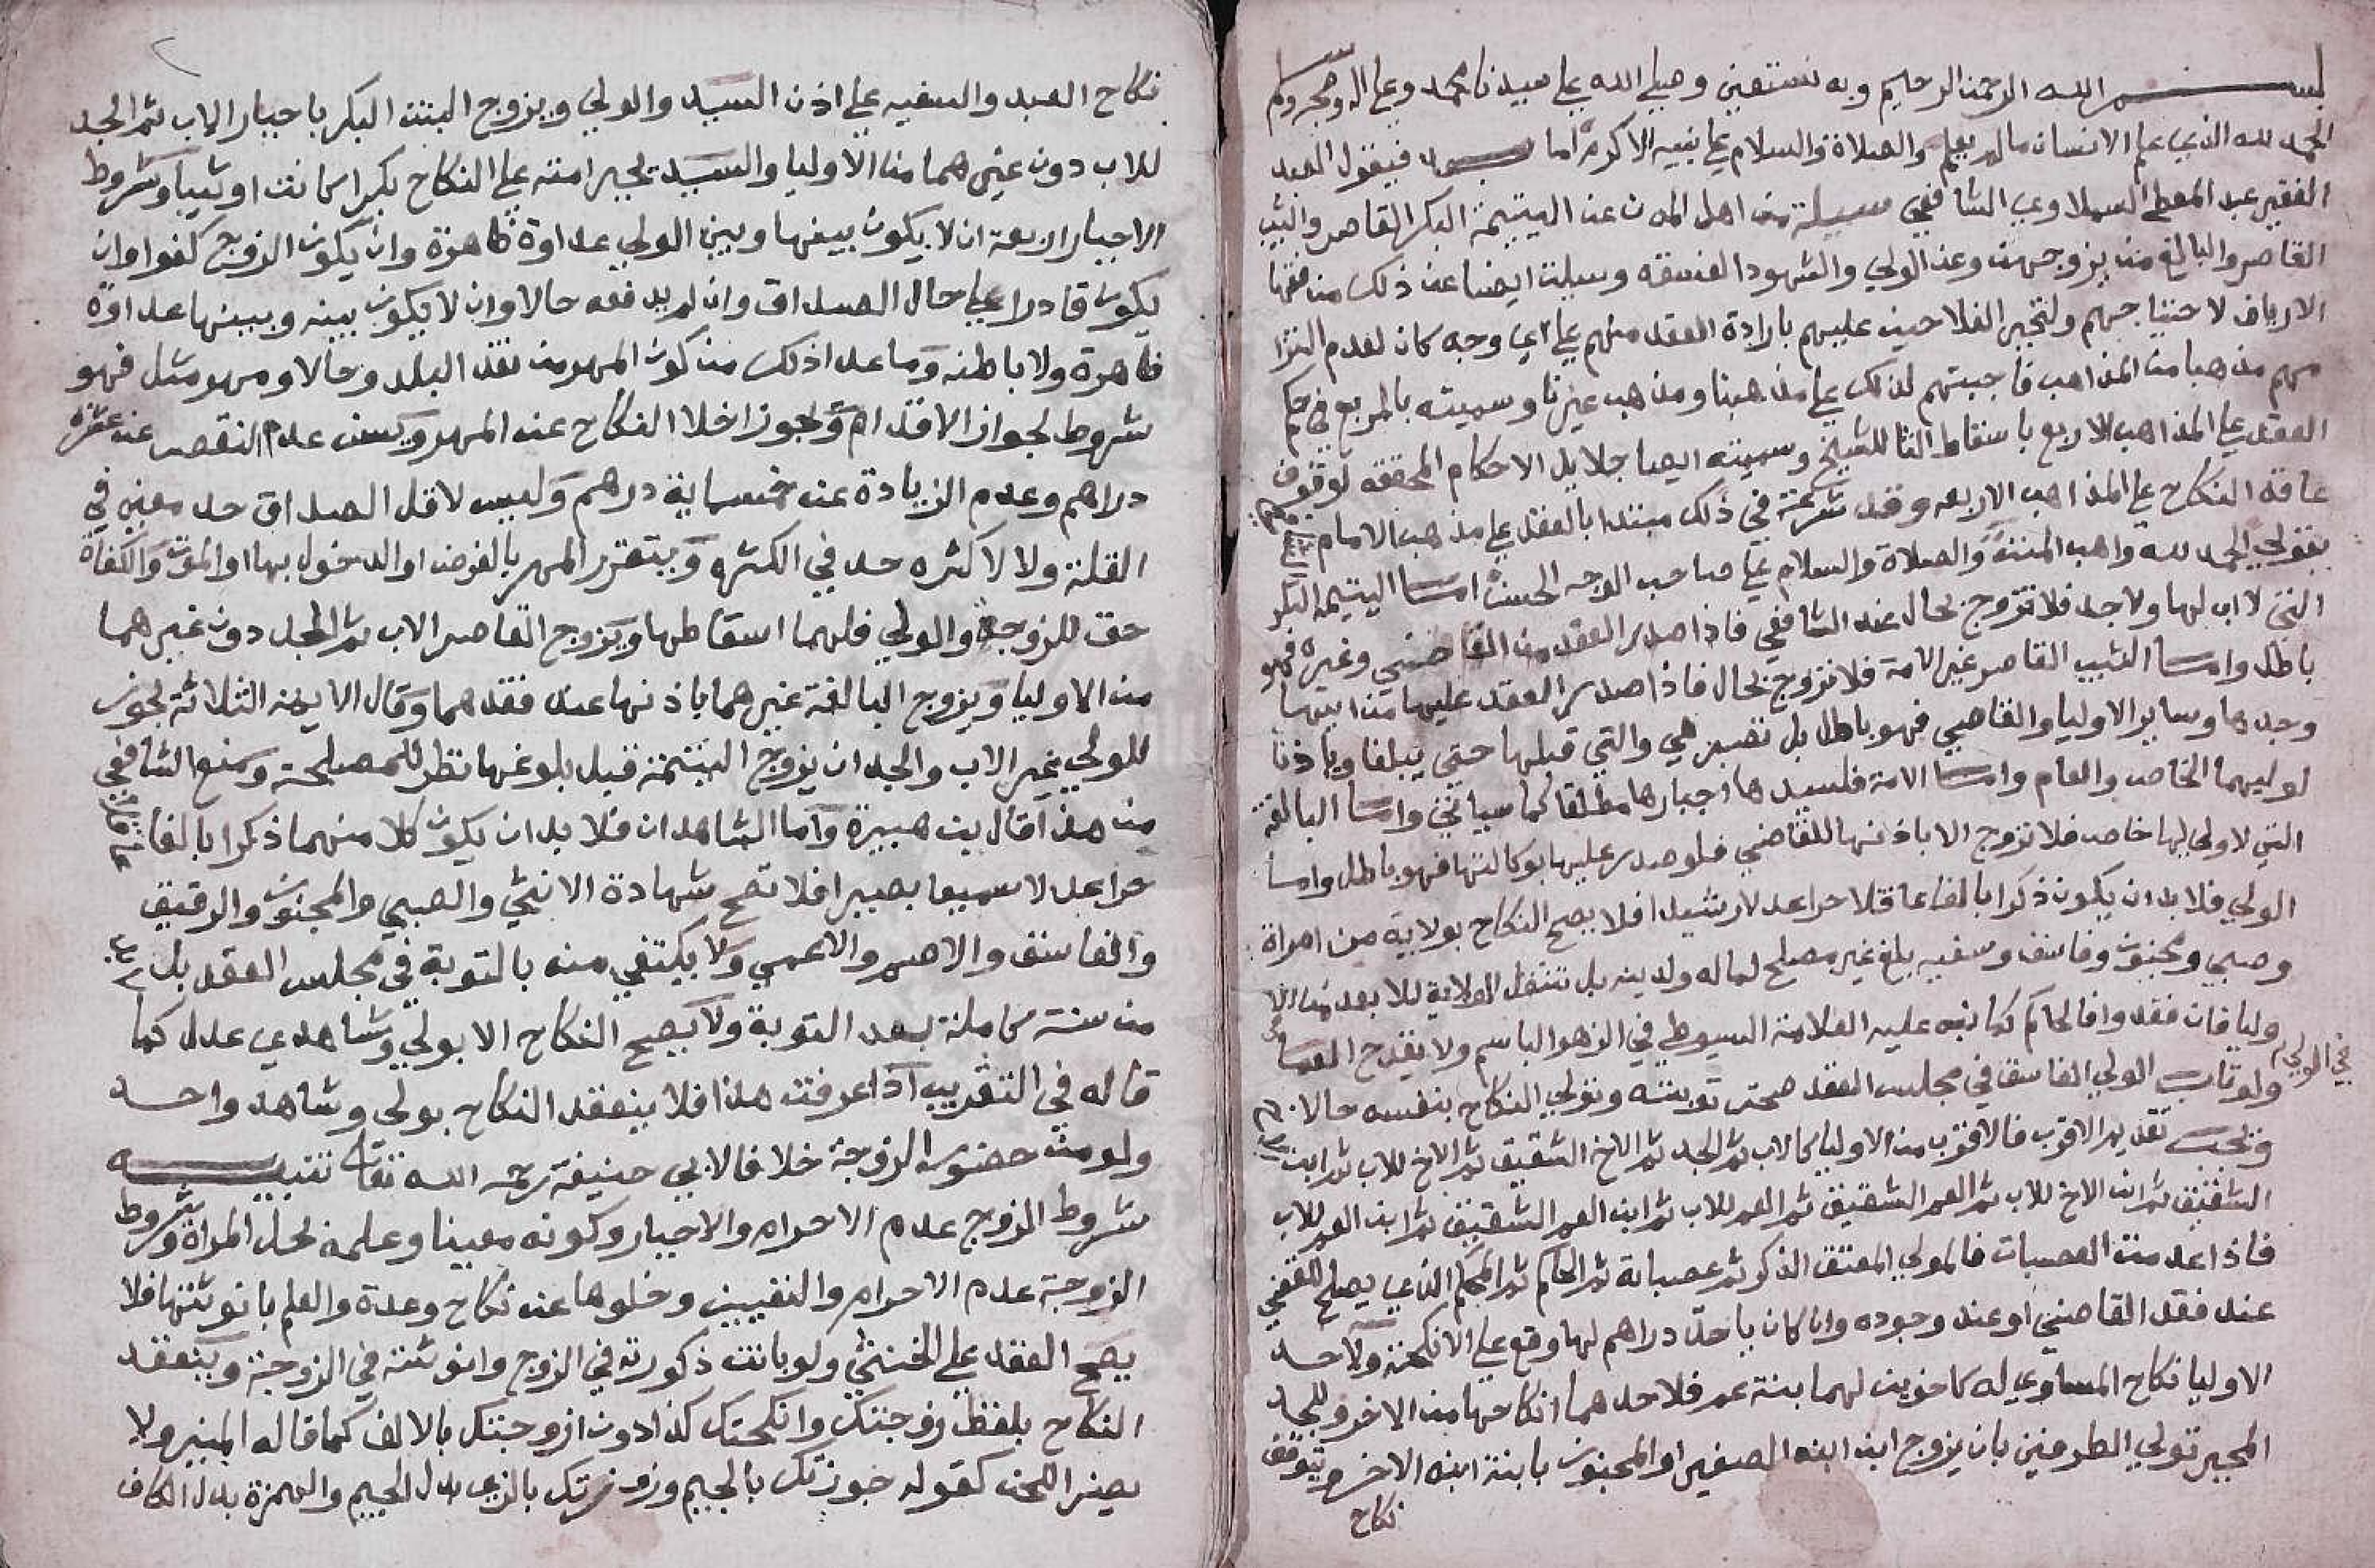 بسم الله الرحمن الرحيم وبه نستعين وصلي الله علي سيدنا محمد وعلي اله وصحبه وسلم
الحمد لله الذي علم الانسان مالم يعلم والصلاة والسلام علي نبيه الاكرم اما بعد فيقول العبد
الفقير عبد المعطي السملاوي الشافعي سيلت من اهل المدن عن اليتيمة البكر القاصر والثيب
القاصر والبالغ من يزوجهن وعن الولي والشهود الفسقه وسيلت ايضا عن ذلك من فقها
الارياف لاحتياجهم ولتجبر الفلاحين عليهم بارادة العقد منهم علي اي وجه كان لعدم التزا
مهم مذهبا من المذاهب فاجبتهم لذلك علي مذهبنا ومذهب غيرنا وسميته بالمربع في حكم
العقد علي المذاهب الاربع باسقاط التا للشيخ وسميته ايضا جلايل الاحكام المحققه لوقوف
عاقد النكاح علي المذاهب الاربعه وقد شرعت في ذلك مبتدا بالعقد علي مذهب الامام
بقولي الحمد لله واهب المنن والصلاة والسلام علي صاحب الوجه الحسن اما اليتيمه البكر
التي لا اب لها ولا جد فلا تزوج بحال عند الشافعي فاذا صدر العقد من القاضي وغيره فهو
باطل واما الثيب القاصر غير الامة فلا تزوج بحال فاذا صدر العقد عليها من ابيها
وجدها وساير الاوليا والقاضي فهو باطل بل تصبر هي والتي قبلها حتي يبلغا وياذنا
لوليهما الخاص والعام واما الامة فلسيدها اجبارها مطلقا كما سياتي واما البالغة
التي لا ولي لها خاص فلا تزوج الا باذنها للقاضي فلو صدر عليها بوكالتها فهو باطل واما
الولي فلا بد ان يكون ذكرا بالغا عاقلا حرا عدلا رشيدا فلا يصح النكاح بولاية من امراة
وصبي ومجنون وفاسق وسفيه بلغ غير مصلح لماله ولدينه بل تنتقل الولاية للابعد من الا
وليا فان فقدوا فالحاكم كما نبه عليه العلامة السيوطي في الزهر الباسم ولا يقدح العما
في الولي
ولو تاب الولي الفاسق في مجلس العقد صحت توبته وتولي النكاح بنفسه حالا
ويجب تقديم الاقرب فالاقرب من الاوليا كالاب ثم الجد ثم الاخ الشقيق ثم الاخ للاب ثم ابن
الشقيق ثم ابن الاخ للاب ثم العم الشقيق ثم العم للاب ثم ابن العم الشقيق ثم ابن العم للاب
فاذا عدمت العصبات فالمولي المعتق الذكر ثم عصباته ثم الحاكم ثم المحكم الذي يصلح للقضي
عند فقد القاضي او عند وجوده وان كان ياخذ دراهم لها وقع علي الانكحة ولاحد
الاوليا نكاح المساوي له كاخوين لهما بنة عم فلاحدهما انكاحها من الاخر وللجد
المجبر تولي الطرفين بان يزوج ابن ابنه الصغير او المجنون بابنة ابنه الاخر ويتوقف
نكاح
نكاح العبد والسفيه علي اذن السيد والولي ويزوج البنت البكر باجبار الاب ثم الجد
للاب دون غيرهما من الاوليا والسيد يجبر امته علي النكاح بكرا كانت او ثيبا وشروط
الاجبار اربعة ان لا يكون بينها وبين الولي عداوة ظاهرة وان يكون الزوج كفوا وان
يكون قادرا علي حال الصداق وان لم يدفعه حالا وان لا يكون بينه وبينها عداوة
ظاهرة ولا باطنه وما عدا ذلك من كون المهر من نقد البلد وحالا ومهر مثل فهو
شروط لجواز الاقدام ويجوز اخلا النكاح عن المهر ويسن عدم النقص عن عشرة
دراهم وعدم الزيادة عن خمسماية درهم وليس لاقل الصداق حد معين في
القلة ولا لاكثره حد في الكثره ويتقرر المهر بالفرض او الدخول بها او الموت والكفاة
حق للزوجة والولي فلهما اسقاطها ويزوج القاصر الاب ثم الجد دون غيرهما
من الاوليا ويزوج البالغة غيرهما باذنها عند فقدهما وقال الايمة الثلاثة يجوز
للولي غير الاب والجد ان يزوج اليتيمة قبل بلوغها نظر للمصلحة ومنع الشافعي
من هذا قال بن هبيرة واما الشاهدان فلا بد ان يكون كلا منهما ذكرا بالغا عاقلا
حرا عدلا سميعا بصيرا فلا تصح شهادة الانثي والصبي والمجنون والرقيق
والفاسق والاصم والاعمي ولا يكتفي منه بالتوبة في مجلس العقد بل لا بد
من سنة كاملة بعد التوبة ولا يصح النكاح الا بولي وشاهدي عدل كما
قاله في التقريب اذا عرفت هذا فلا ينعقد النكاح بولي وشاهد واحد
ولو مت حضور الزوجة خلافا لابي حنيفة رحمه الله تعالي تنبيه
شروط الزوج عدم الاحرام والاجبار وكونه معينا وعلمه بحل المراة وشروط
الزوجة عدم الاحرام والتعيين وخلوها عن نكاح وعدة والعلم بانوثتها فلا
يصح العقد علي الخنثي ولو بانت ذكورته في الزوج وانوثته في الزوجة وينعقد
النكاح بلفظ زوجتك وانكحتك كذا دون ازوجتك بالالف كما قاله المنير ولا
يضر اللحن كقوله جوزتك بالجيم وزوزتك بالزي بدل الجيم والهمزة بدل الكاف